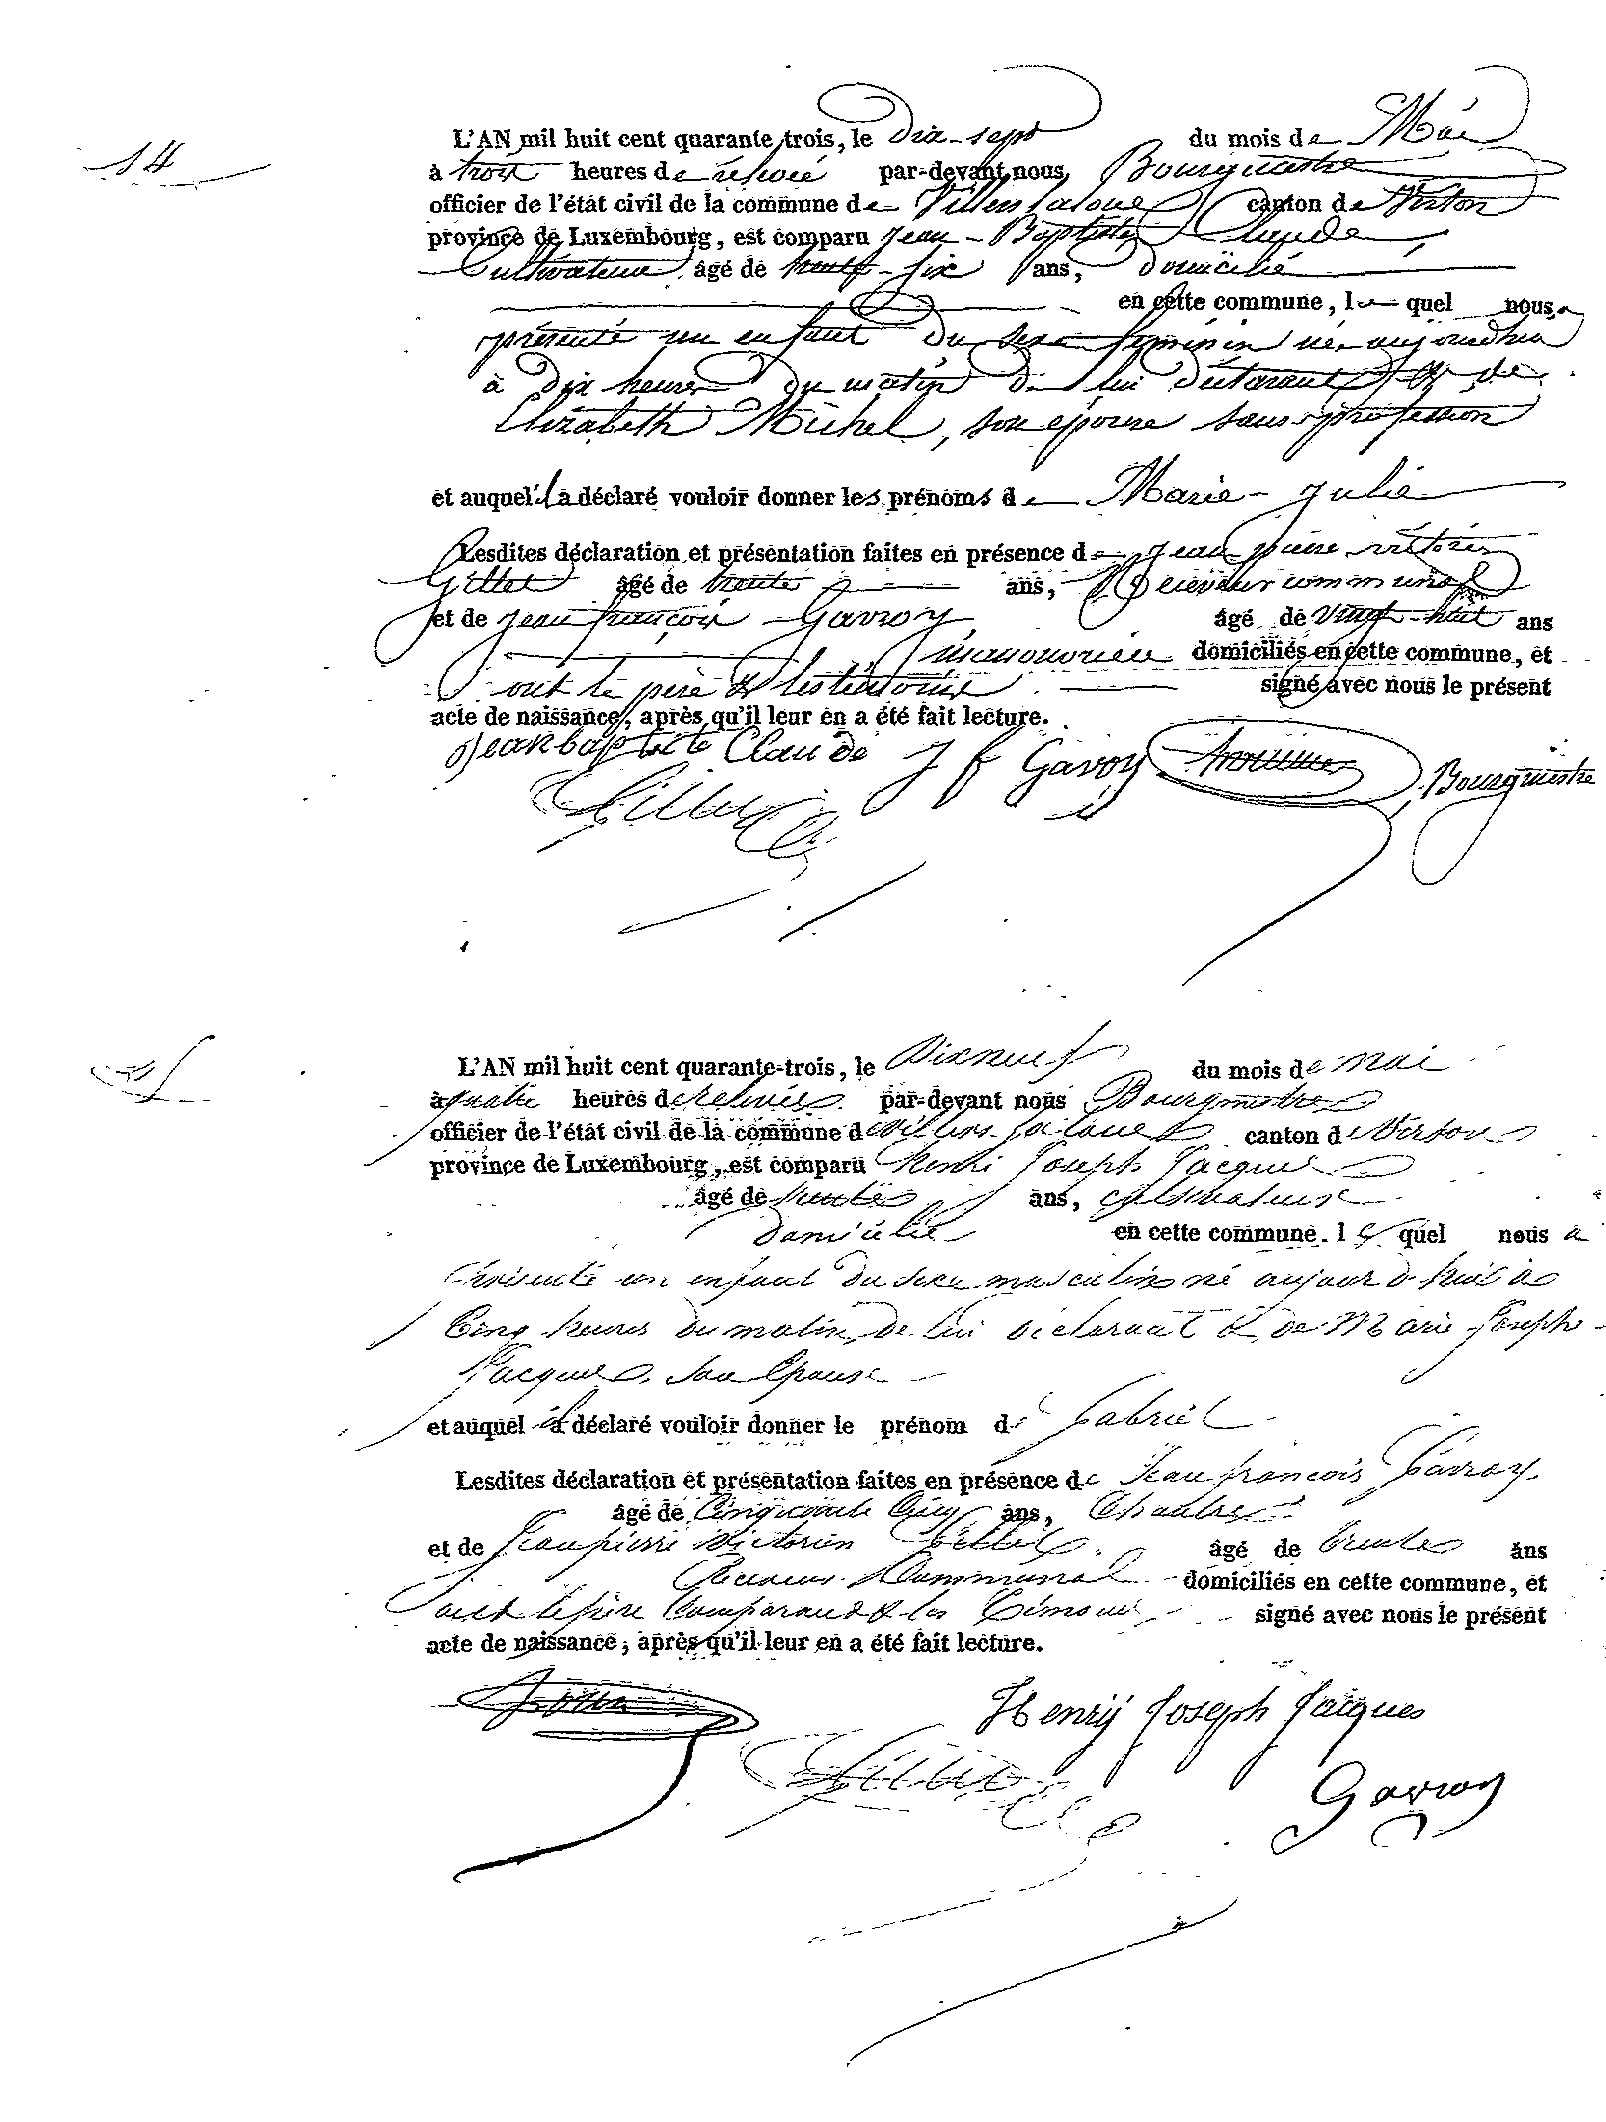 14
L'AN mil huit cent quarante-trois, le dix-sept du mois de Mai
à trois heures de relevée par-devant nous Bourgmestre
officier de l'état civil de la commune de Villers la loue canton de Virton
province de Luxembourg, est comparu Jean-Baptiste Claude
Cultivateur âgé de trente-six ans, domicilié
en cette commune, lequel nous a
présenté un enfant du sexe féminin né aujourdhui
à dix heures du matin de lui déclarant & de
Elizabeth Michel, son épouse sans profession
et auquel il a déclaré vouloir donner les prénoms de Marie-Julie
Lesdites déclaration et présentation faites en présence de Jean-pierre victorien
Gillet âgé de trente ans, Receveur communal
et de jean françois Gavroy âgé de vingt-huit ans
manouvrier domiciliés en cette commune, et
ont le père & les témoins signé avec nous le présent
acte de naissance, après qu'il leur en a été fait lecture.
Jeanbaptiste Claude J f Gavoy Bourgmestre
Gillet
L'AN mil huit cent quarante-trois, le Dixneuf du mois de mai
à quatre heures de relevée par-devant nous Bourgmestre
officier de l'état civil de la commune de Villers la loue canton de Virton
province de Luxembourg, est comparu Henri Joseph Jacques
âgé de trente ans, cultivateur
Domicilié en cette commune. le quel nous a
Présenté un enfant du sexe masculin né aujourd'hui à
Cinq heures du matin de lui déclarant & de Marie Joseph
Jacques, son Epouse
et auquel il a déclaré vouloir donner le prénom de Gabriel
Lesdites déclaration et présentation faites en présence de Jean françois Gavroy
âgé de Cinquante Cinq ans, Chantre
et de Jean pierre Victorien Gillet âgé de trente ans
Receveur Communal domiciliés en cette commune, et
ont le père Comparant & les Témoins signé avec nous le présent
acte de naissance, après qu'il leur en a été fait lecture.
Henrÿ Joseph Jacques
Gillet
Gavroy